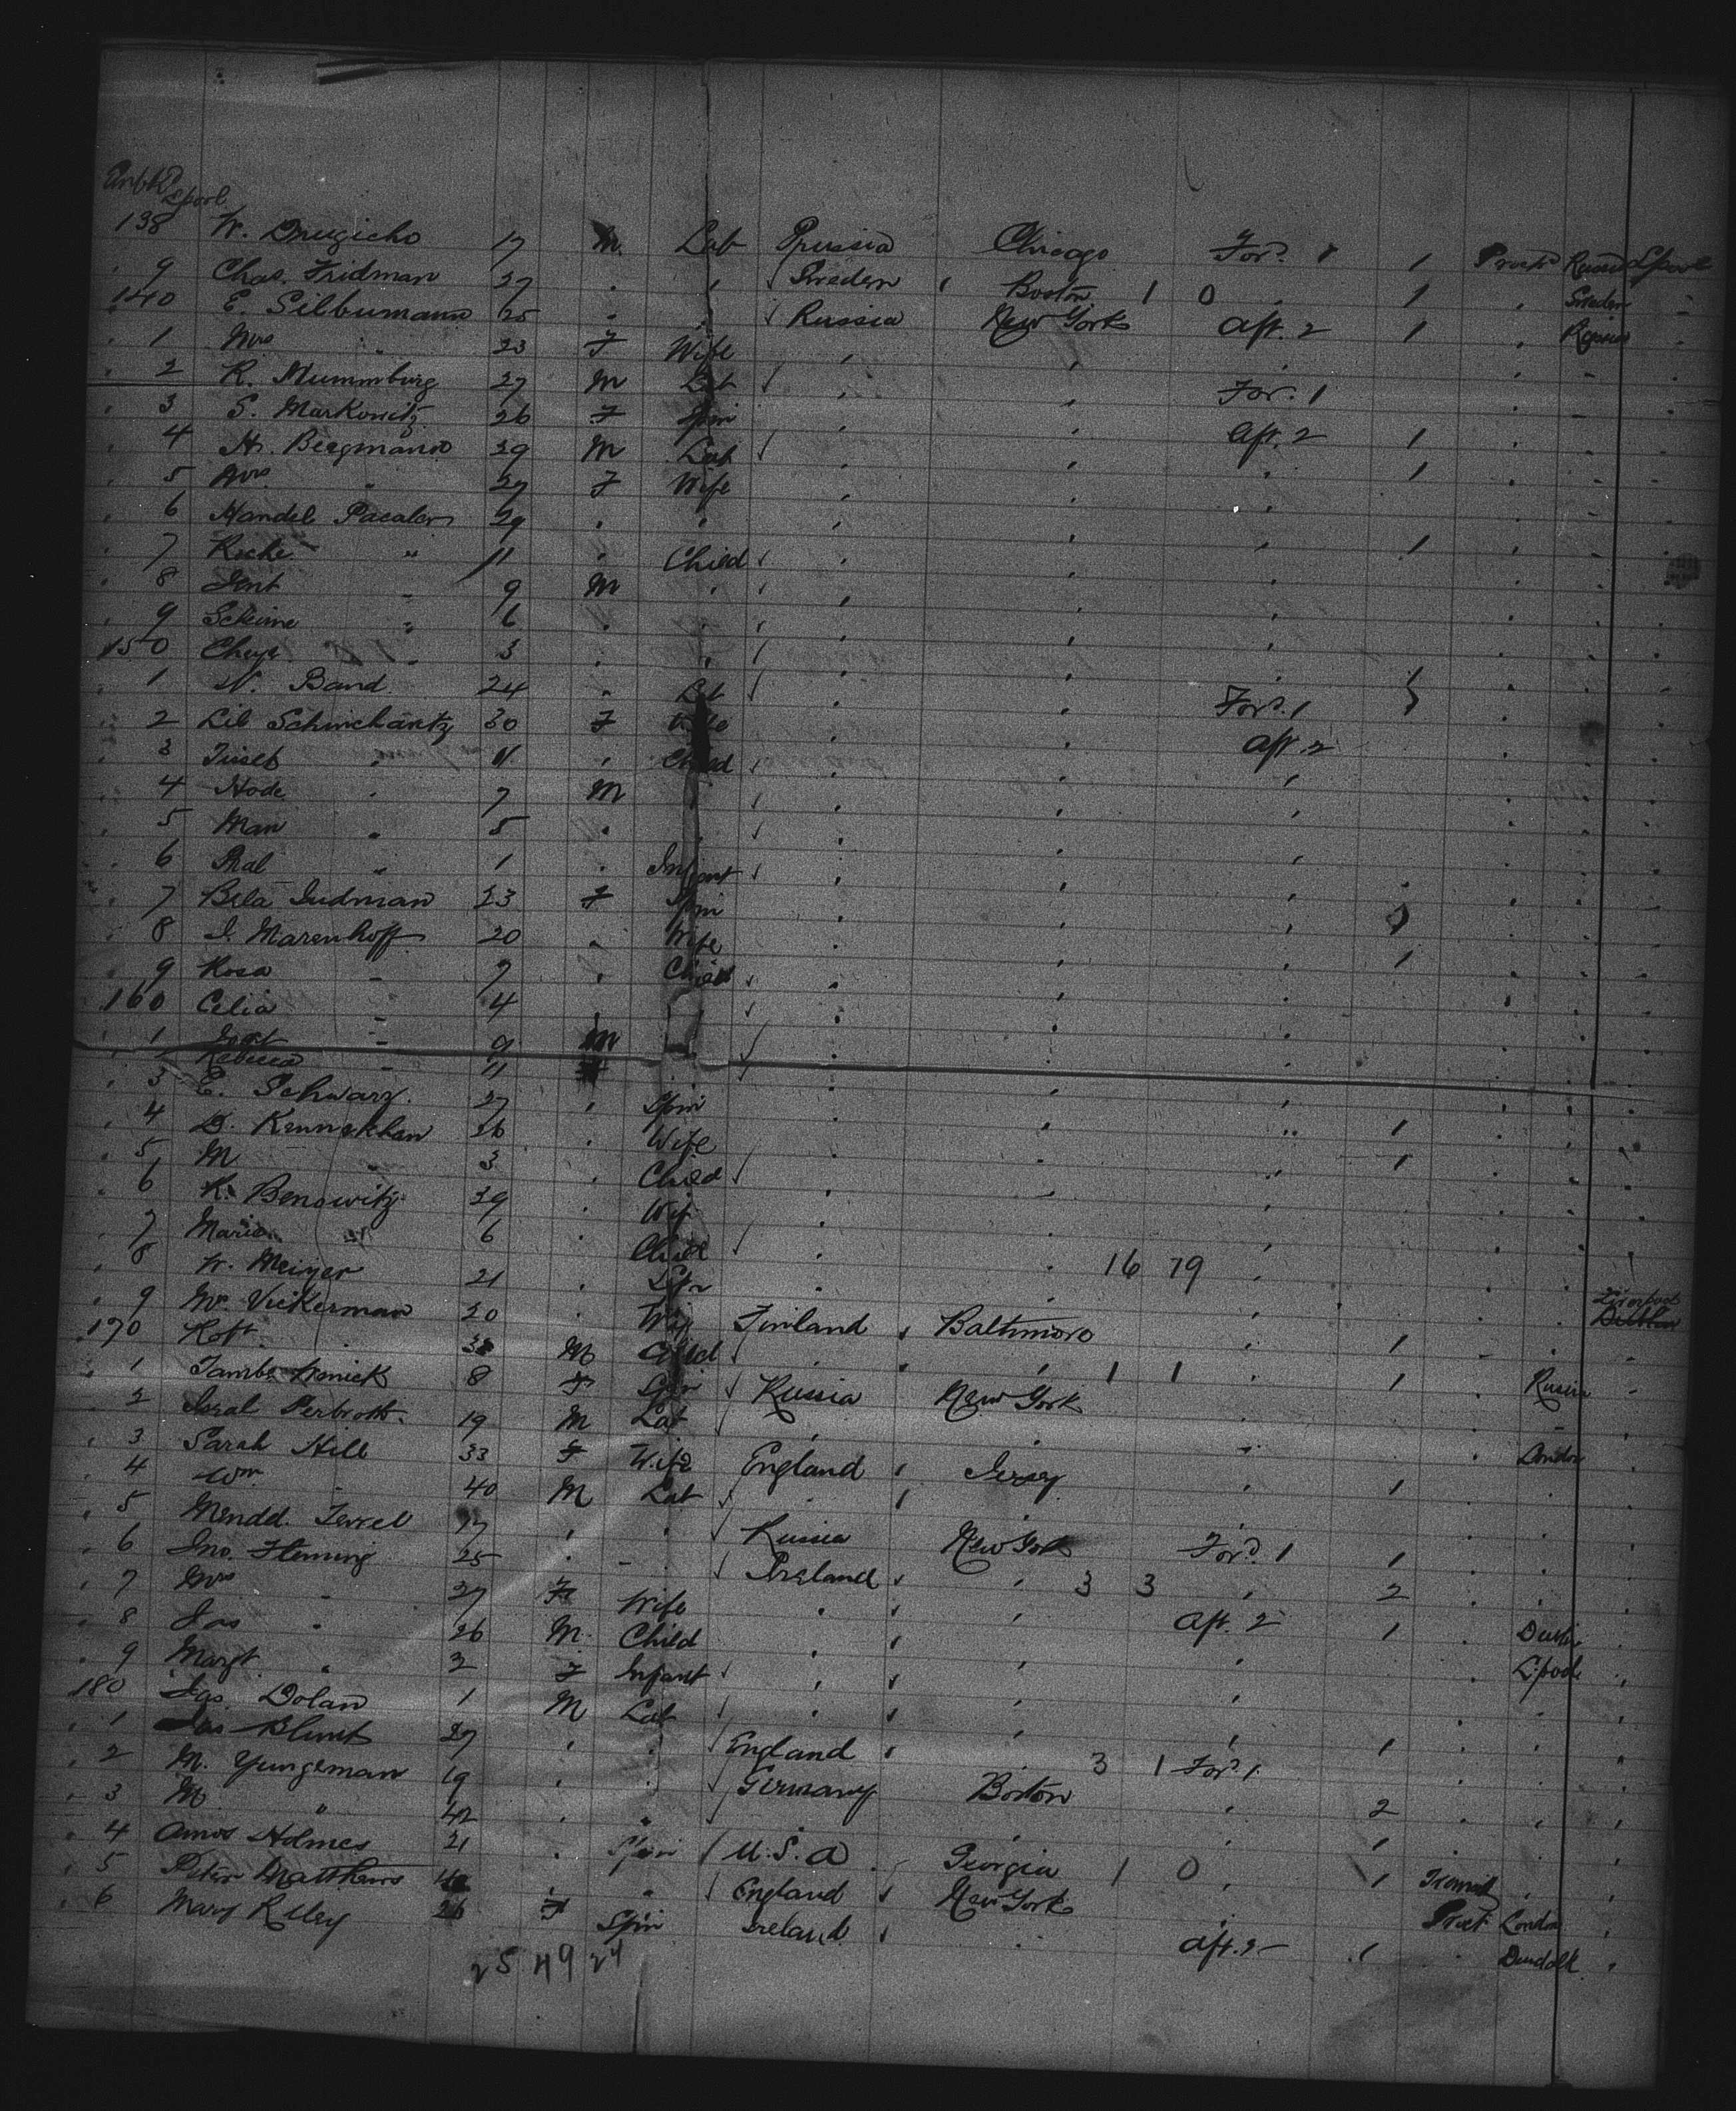 138 W. Drugicho 17 M. Lab Prussia Chicago For'd 1 1 Russia L'pool
" 9 Chas. Fridman 27 " " Sweden Boston 1 0 " 1 " Sweden "
140 E. Silbumann 25 " " Russia New York Aft. 2 1 " Russia "
" 1 Mrs " 23 F Wife " " "
" 2 R. Mummburg 27 M Lab " " For. 1
" 3 S. Markowitz 26 F Spin " " Aft. 2 1
" 4 H. Bergmann 29 M Lab " " " 1
" 5 Mrs " 27 F Wife " " "
" 6 Handel Pacaler 29 " " " " " 1
" 7 Roche " 11 " Child " " "
" 8 Jent " 9 M " " " "
" 9 Scheime " 6 " " " " "
150 Chaje " 3 " " " " "
" 1 N. Band 24 " Lab " " For'd. 1
" 2 Lib Schwichantz 30 F Wife " " Aft. 2
" 3 " 11 " Child " " "
" 4 Hode " 7 M " " "
" 5 Man " 5 " " " "
" 6 " 1 " Infant " " "
" 7 Bela Gudman 23 F Spin " " "
" 8 I. Marenhoff 20 " Wife " " " 1
" 9 Rosa " 7 " Child " " "
160 Celia " 4 " " "
" 1 " 9 M " "
Rebecca " 11 F
" 3 E. Schwarz. 27 " Spin " " "
" 4 D. 26 " Wife " " " 1
" 5 M " 3 " Child " " " 1
" 6 K. Benowitz 39 " Wife " " "
" 7 Marie " 6 " Child " " "
" 8 W. Meiyer 21 " Spin " " 16 79 "
" 9 Mrs. Vickerman 20 " Wife Finland Baltimore " 1 Liverpool
170 Robt 38 M Child " " 1 1 " 1 Russia "
" 1 8 F Spin Russia New York "
" 2 Isral 19 M Lab " " " London
" 3 Sarah Hill 33 F Wife England Jersey " 1
" 4 Wm 40 M Lab " " "
" 5 Mendd. Terrel 17 " " Russia New York For'd 1 1
" 6 Jno. Fleming 25 " " Ireland " 3 3 " 2
" 7 Mrs " 27 F Wife " " Aft. 2 1 Dublin
" 8 Jas " 26 M. Child " " " L'pool
" 9 Margt " 2 F Infant " " "
180 Jas. Dolan 1 M Lab " " " 1
" 1 Jas Blunt 27 " " England " 3 1 For'd 1.
" 2 M. Yungeman 19 " " Germany Boston " 2
" 3 M " 42 " " " " " 1
" 4 Amos Holmes 21 " Spin U.S.A Georgia 1 0 " 1 Transit "
" 5 Peter Matthews " " England New York " London
" 6 Mary Riley 26 F Spin Ireland " Aft. 2 1 Dundalk
25 49 24